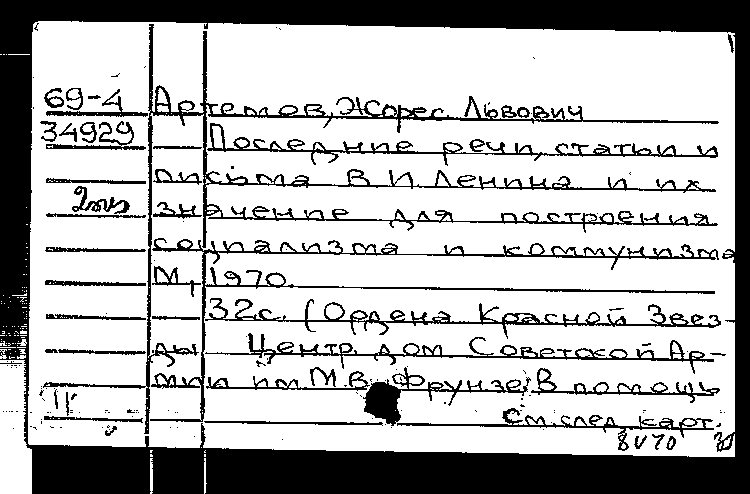 69-4 Артемов, Жорес Львович
34929 Последние речи, статьи и
письма В.И.Ленина и их
2 экз значение для построения
социализма и коммунизма
М, 1970.
32с. (Ордена Красной Звез-
ды Центр. дом Советской Ар-
мии им. М.В. Фрунзе. В помощь
см. след. карт.
8 V 70